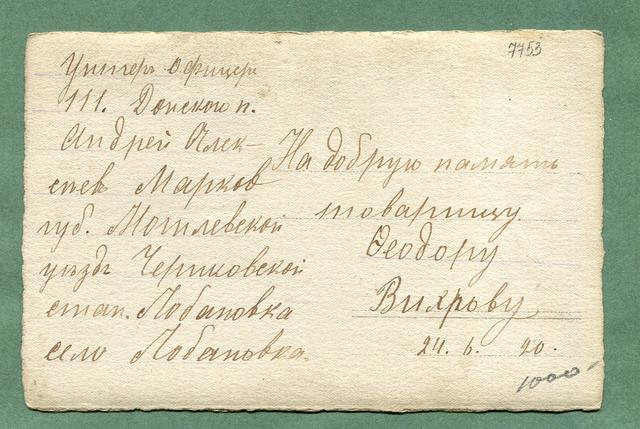 7753
Унтеръ офицеръ
111. Донского п.
Андрей Алек-
сеев Марков
губ. Могилевской
уездъ Чериковской
стан. Лобановка
село Лобановка.
На добрую память
товарищу
Феодору
Вихрову
24. 6. 20.
1000